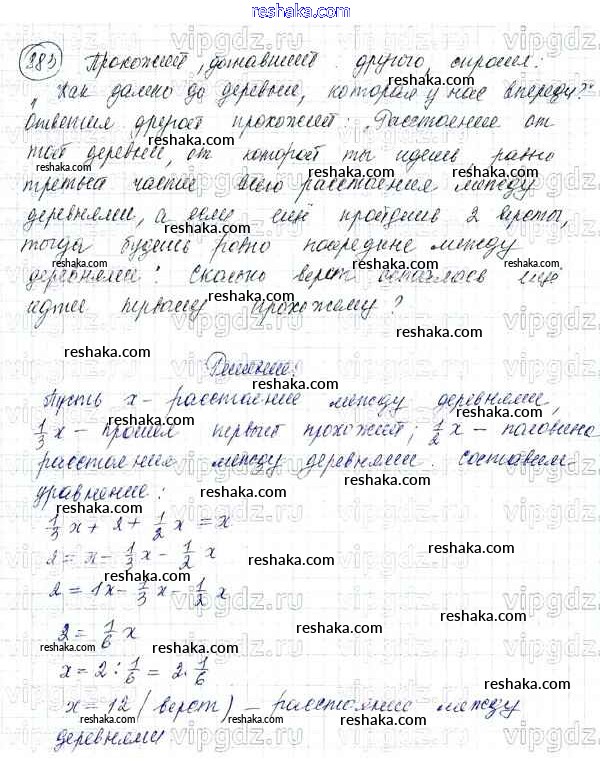 385 Прохожий, догнавший другого, спросил:
„Как далеко до деревни, которая у нас впереди?"
Ответил другой прохожий: „Расстояние от
той деревни, от которой ты идешь, равно
третьей части всего расстояния между
деревнями, а если ещё пройдешь 2 версты,
тогда будешь ровно посредине между
деревнями". Сколько верст осталось ещё
идти первому прохожему?
Решение:
Пусть x - расстояние между деревнями,
1/3 x - прошел первый прохожий; 1/2 x - половина
расстояния между деревнями. Составим
уравнение:
1/3 x + 2 + 1/2 x = x
2 = x - 1/3 x - 1/2 x
2 = 1x - 1/3 x - 1/2 x
2 = 1/6 x
x = 2 : 1/6 = 2 · 1/6
x = 12 (верст) - расстояние между
деревнями
reshaka.com
vipgdz.ru